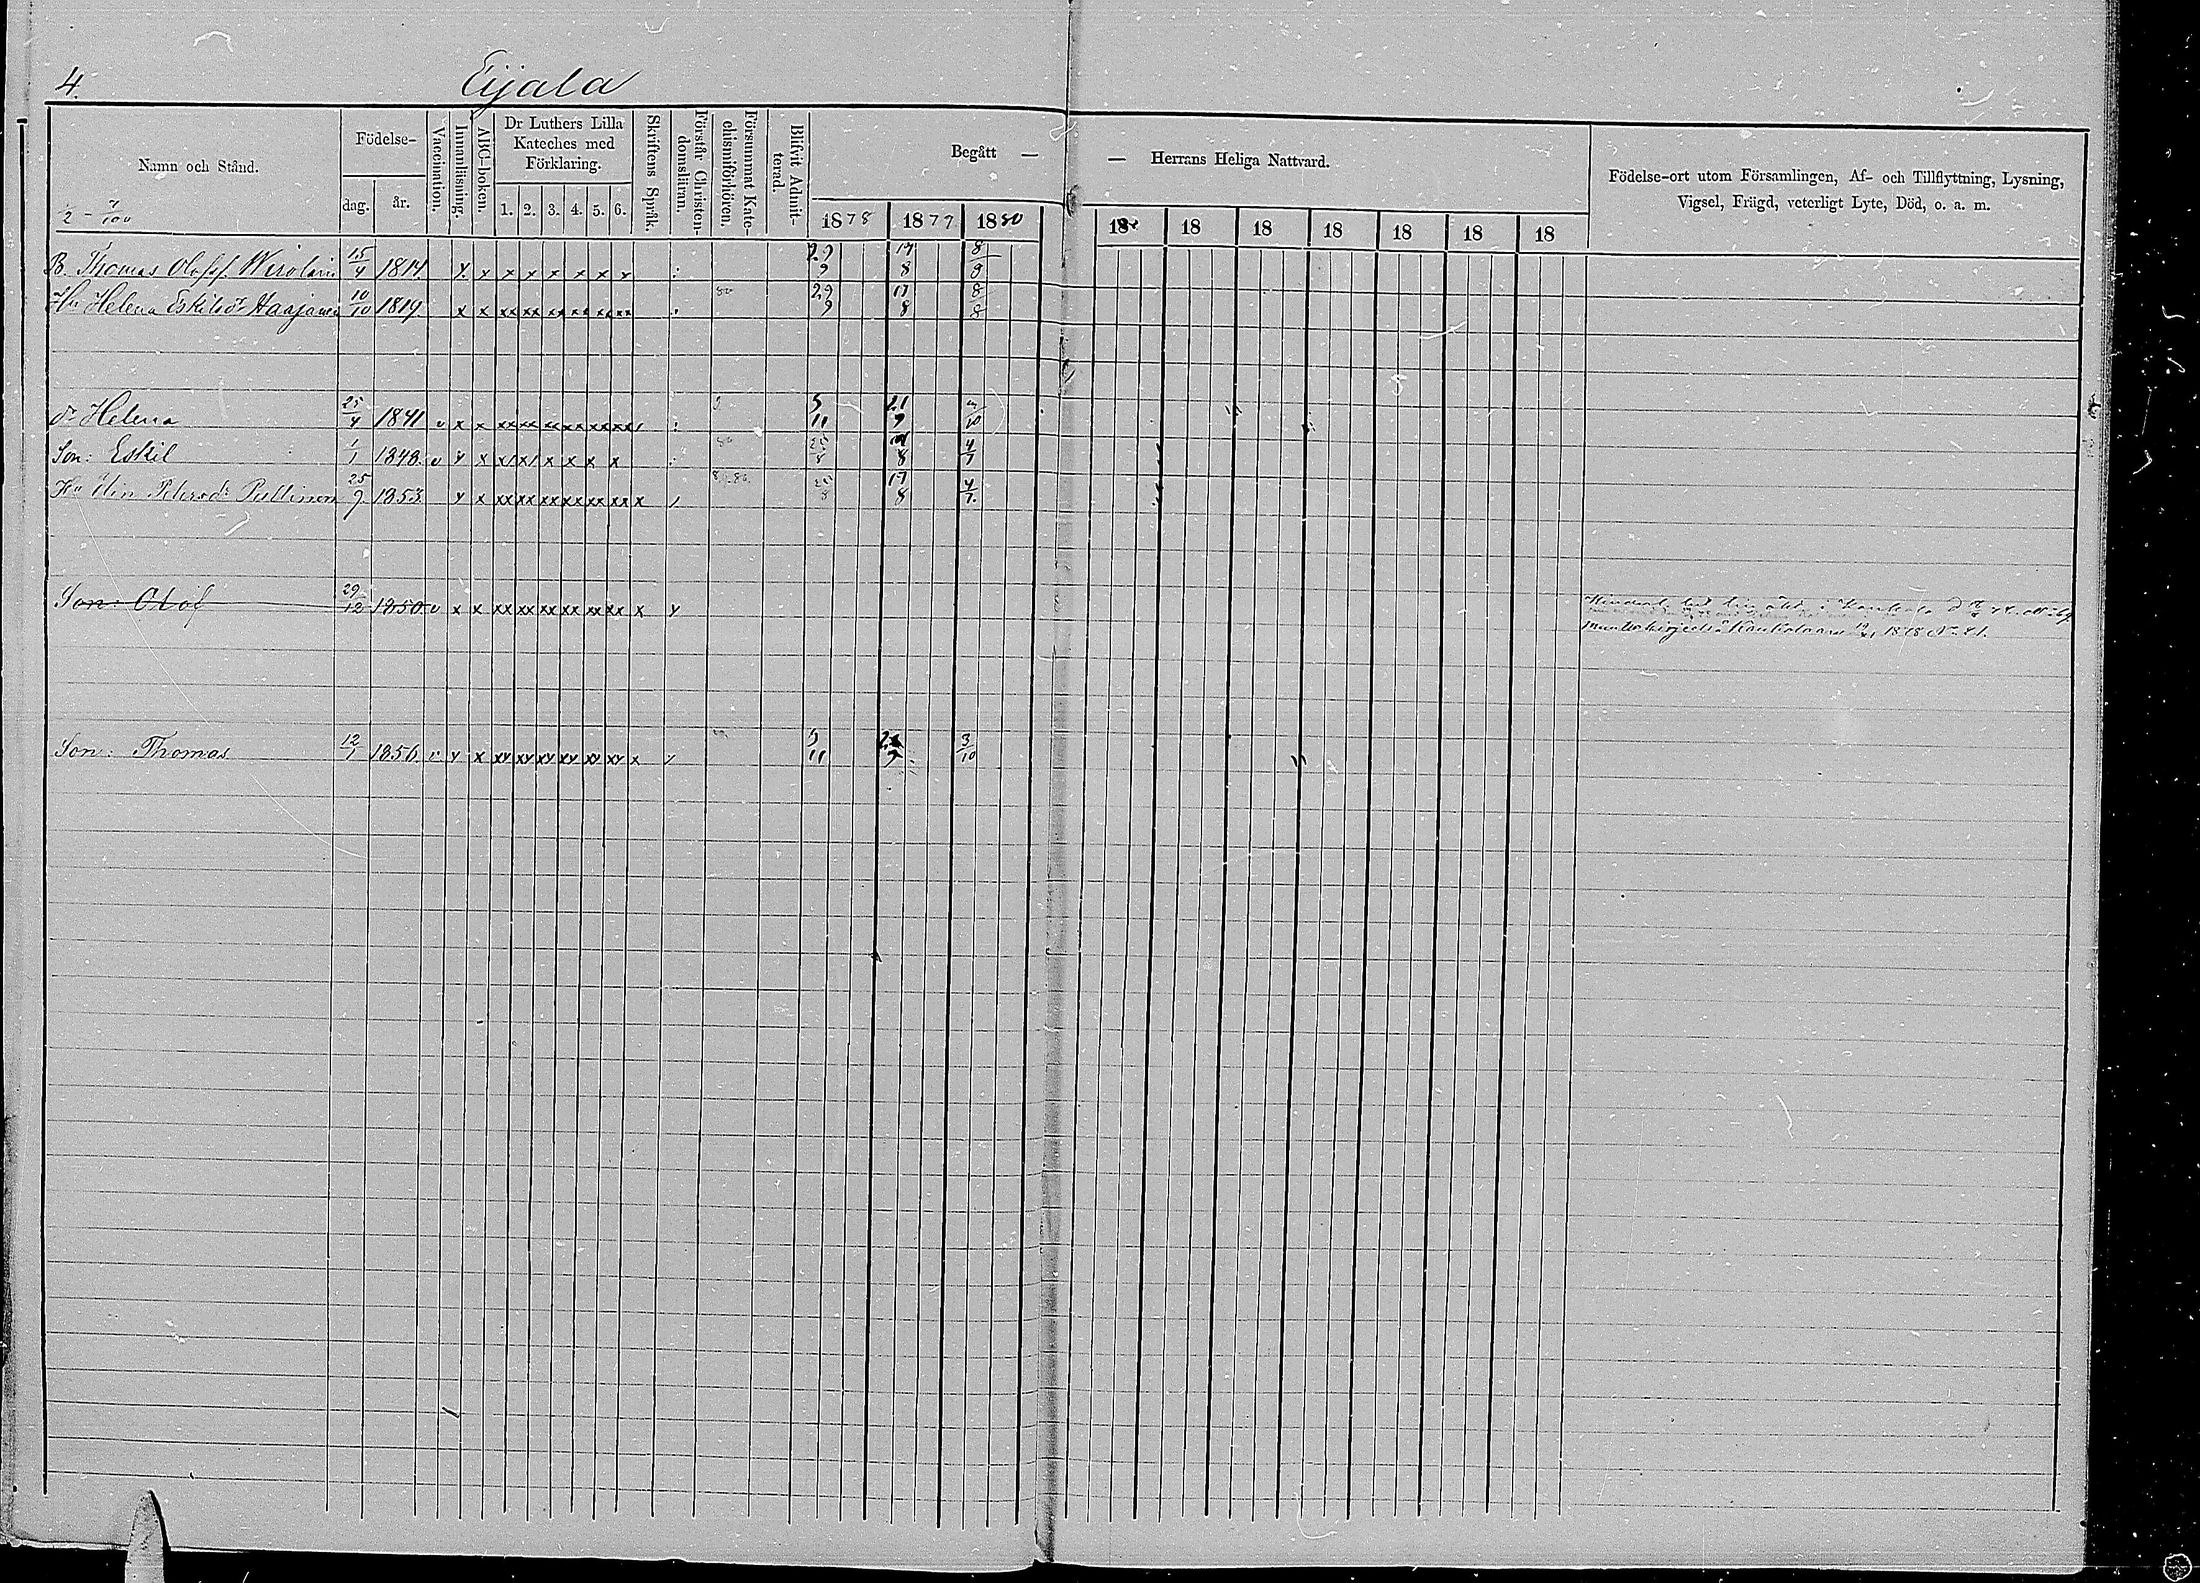 4.
Eijala
Namn och Stånd.
Födelse-
dag.
år.
Vaccination.
Innanläsning.
ABC-boken.
Dr Luthers Lilla
Kateches med
Förklaring.
1. 2. 3. 4. 5. 6.
Skriftens Språk.
Förstår Christen-
domsläran.
Försummat Kate-
chismiförhören.
Blifvit Admit-
terad.
Begått — — Herrans Heliga Nattvard.
1878 1879 1880 18 18 18 18 18 18 18
Födelse-ort utom Församlingen, Af- och Tillflyttning, Lysning,
Vigsel, Frägd, veterligt Lyte, Död, o. a. m.
B. Thomas Olofsf. Wirolain 15/4 1814 x x x x x x x x 29/9 17/8 8/8
Hu Helena Eskilsdr Haajanen 10/10 1819 x x xx xx xx xx xx xx 80 29/9 17/8 8/8
dr Helena 25/4 1841 v x x xx xx xx xx xx xx 5/11 21/9
Son: Eskil 1/1 1848 v x x x x x x x x 80 25/8 8 4/7
Hu Elin Petersdr Pullinen 25/9 1853 x x xx xx xx xx xx xx x 25/8 17/8 4/7
Son: Olof 29/12 1850 v x x xx xx xx xx xx xx x
1878 N 41.
Son: Thomas 12/1 1856 v x x xx xx xx xx xx xx x 5/11 3/10